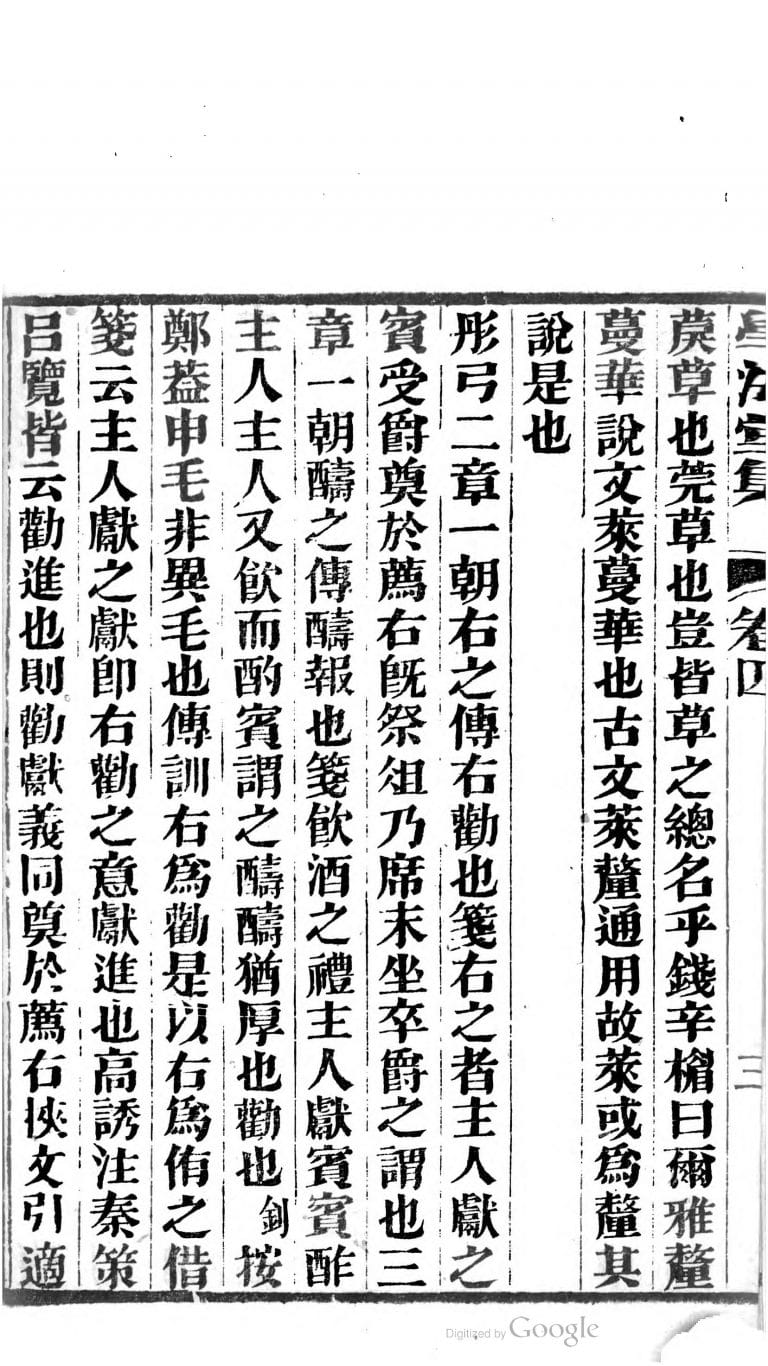 卷四
三
萸草也莞草也豈皆草之總名乎錢辛楣曰爾雅釐
蔓華說文萊蔓華也古文萊釐通用故萊或為釐其
說是也
彤弓二章一朝右之傳右勸也箋右之者主人獻之
賓受爵奠於薦右旣祭俎乃席末坐卒爵之謂也三
章一朝醻之傳醻報也箋飮酒之禮主人獻賓賓酢
主人主人又飮而酌賓謂之醻醻猶厚也勸也釗按
鄭葢申毛非異毛也傳訓右爲勸是以右爲侑之借
箋云主人獻之獻卽右勸之意獻進也高誘注秦策
呂覽皆云勸進也則勸獻義同奠於薦右挾文引適
Digitized by Google